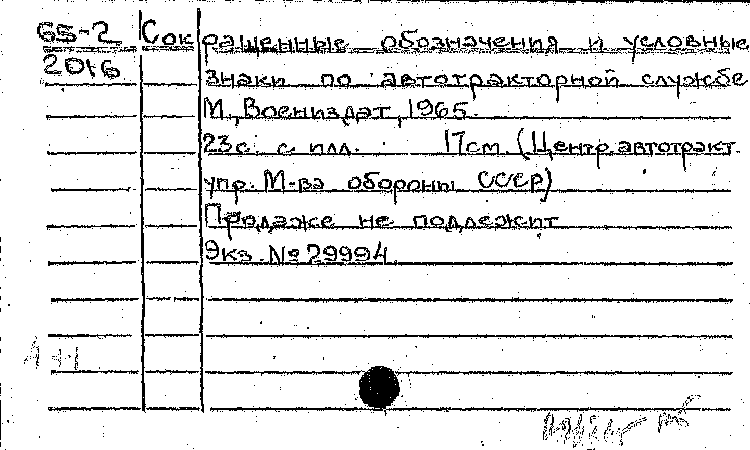 65-2 Сокращенные обозначения и условные
2016 знаки по автотракторной службе
М., Воениздат, 1965.
23с. с илл. 17см. (Центр. автотракт.
упр. М-ва обороны СССР)
Продаже не подлежит
Экз. № 29994.